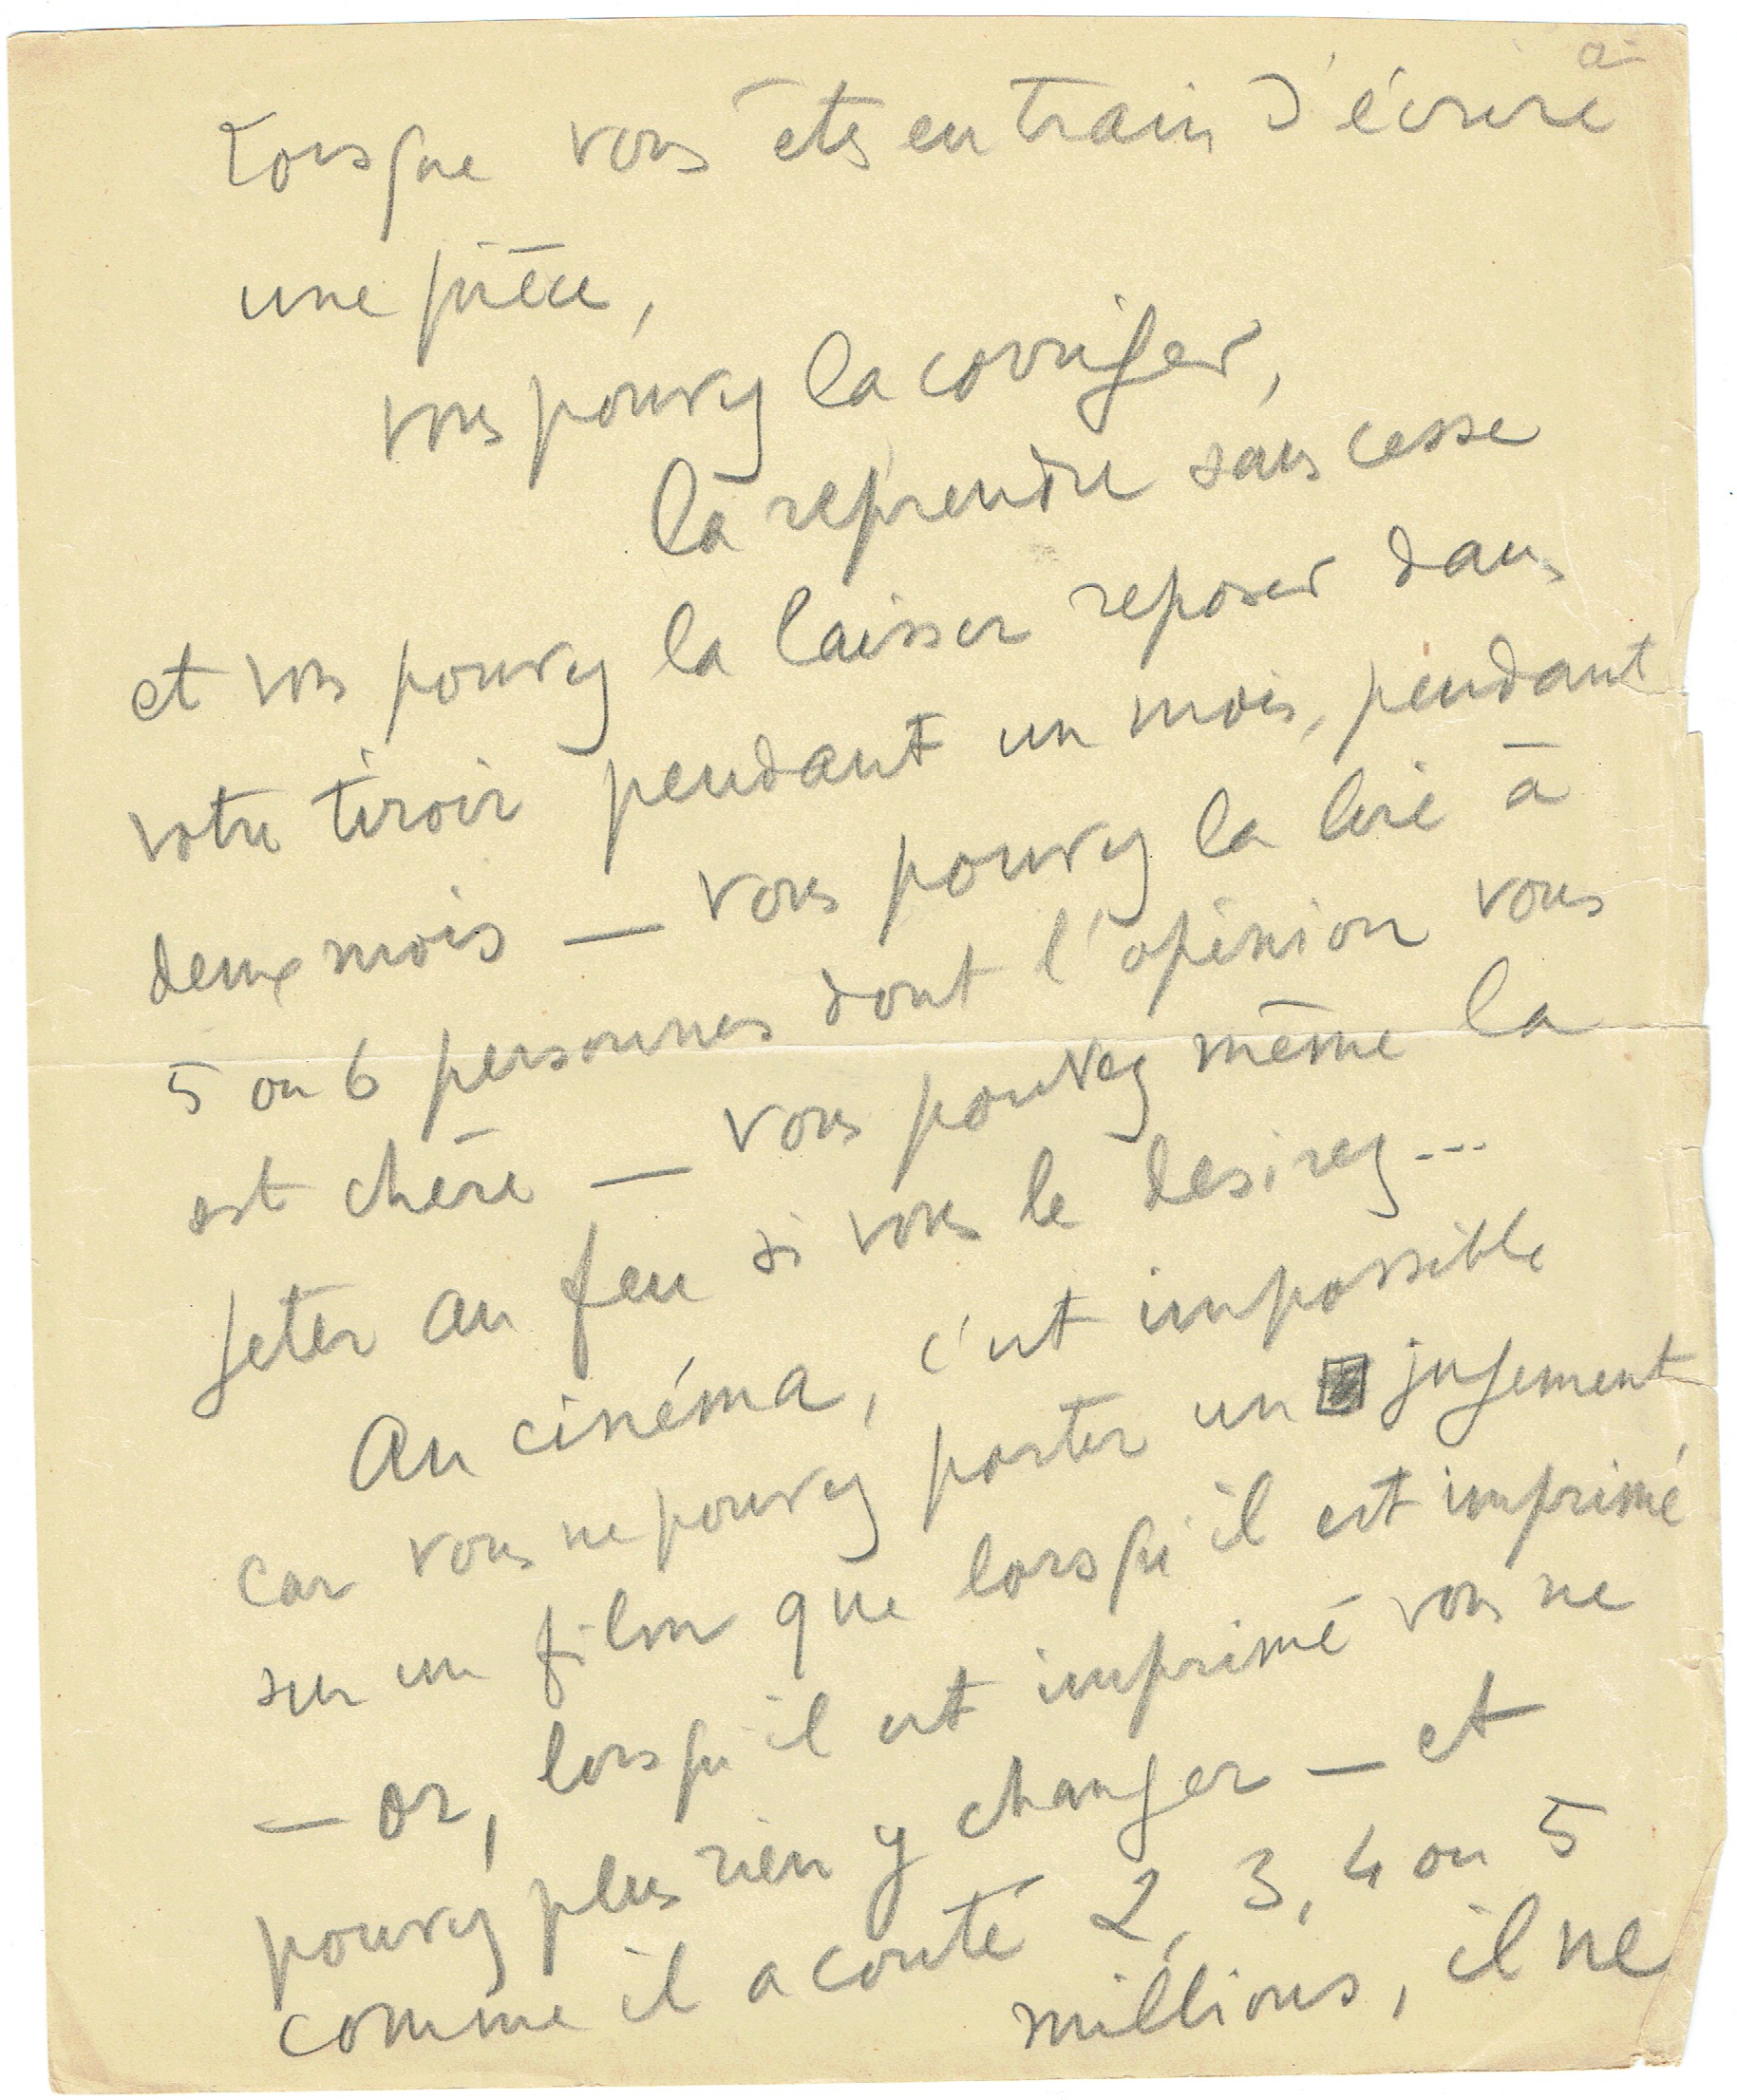 Lorsque vous êtes en train d'écrire
une pièce,
vous pouvez la corriger,
la reprendre sans cesse
et vous pouvez la laisser reposer dans
votre tiroir pendant un mois, pendant
deux mois — vous pouvez la lire à
5 ou 6 personnes dont l'opinion vous
est chère — vous pouvez même la
jeter au feu si vous le desirez...
Au cinéma, c'est impossible
car vous ne pouvez porter un jugement
sur un film que lorsqu'il est imprimé
— or, lorsqu'il est imprimé vous ne
pouvez plus rien y changer — et
comme il a couté 2, 3, 4 ou 5
millions, il ne